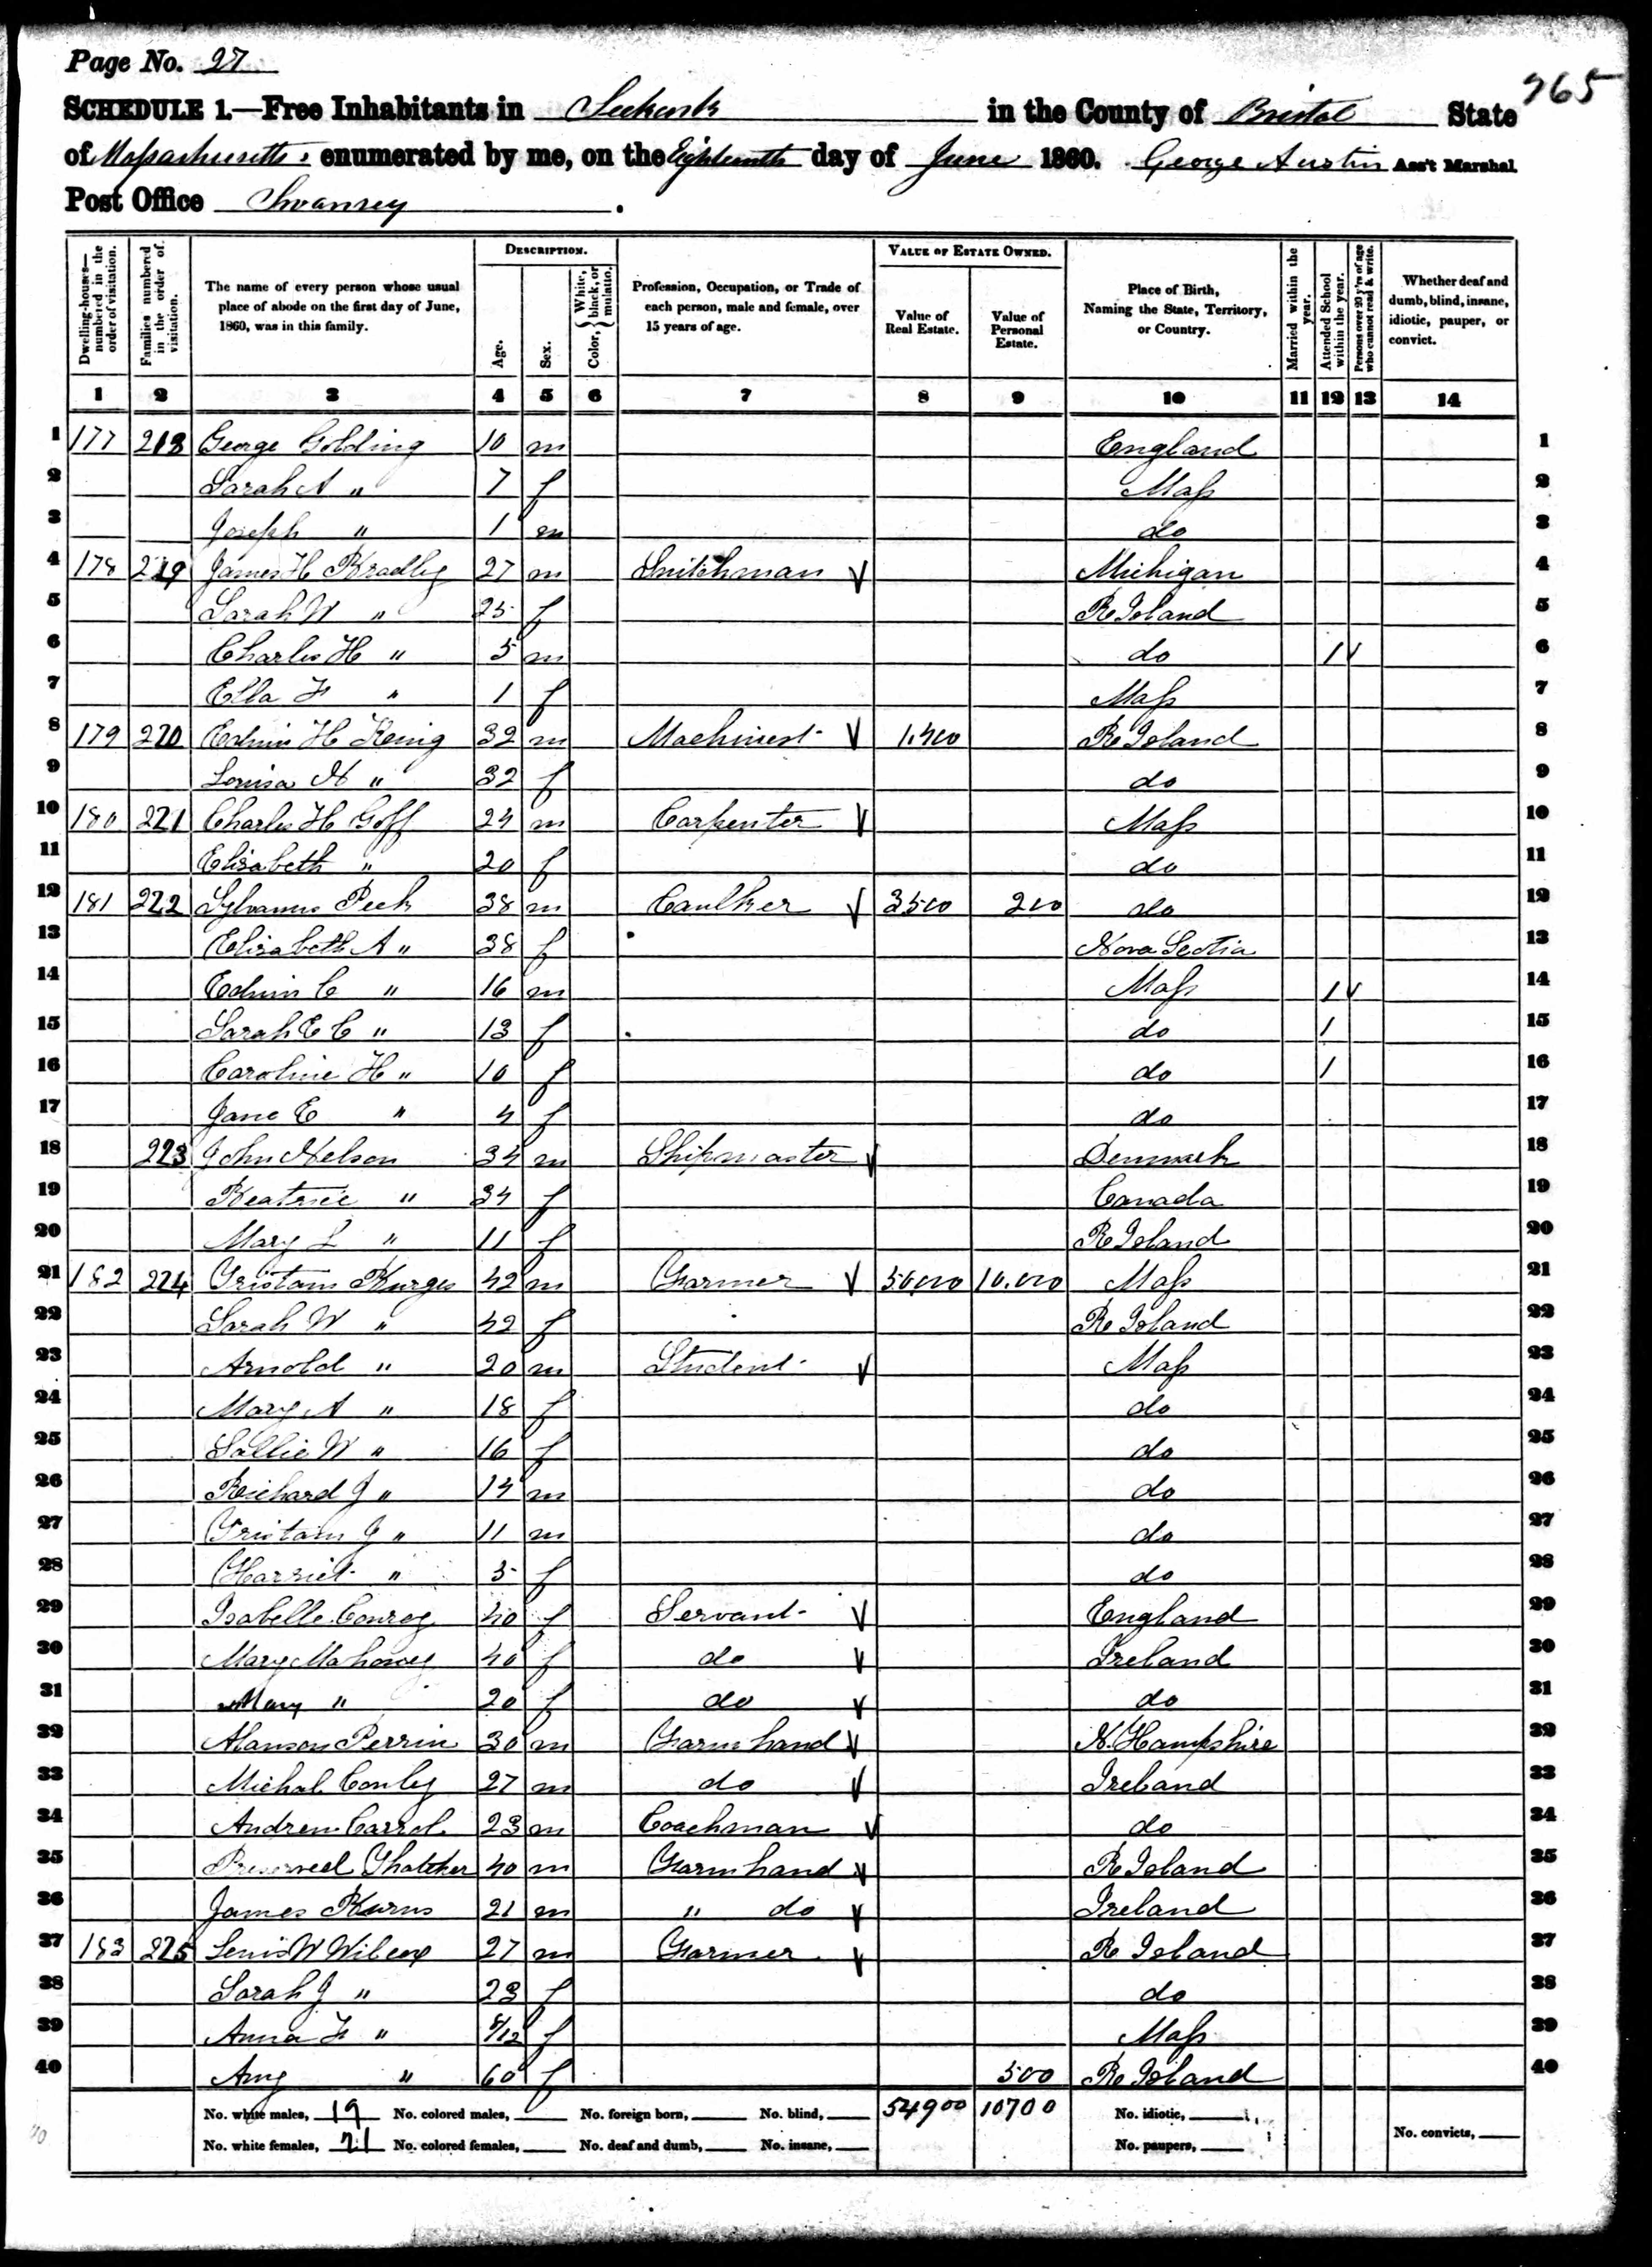 Page No. 27
765
SCHEDULE 1.—Free Inhabitants in Seekonk in the County of Bristol State
of Massachusetts enumerated by me, on the Eighteenth day of June 1860. George Austin Ass't Marshal.
Post Office Swansey.
Dwelling-houses—numbered in the order of visitation.
Families numbered in the order of visitation.
The name of every person whose usual place of abode on the first day of June, 1860, was in this family.
DESCRIPTION.
Age.
Sex.
Color, { White, black, or mulatto.
Profession, Occupation, or Trade of each person, male and female, over 15 years of age.
VALUE OF ESTATE OWNED.
Value of Real Estate.
Value of Personal Estate.
Place of Birth, Naming the State, Territory, or Country.
Married within the year.
Attended School within the year.
Persons over 20 y'rs of age who cannot read & write.
Whether deaf and dumb, blind, insane, idiotic, pauper, or convict.
1 2 3 4 5 6 7 8 9 10 11 12 13 14
1 177 218 George Golding 10 m England 1
2 Sarah A " 7 f Mass 2
3 Joseph " 1 m do 3
4 178 219 James H Bradley 27 m Switchman Michigan 4
5 Sarah W " 25 f R Island 5
6 Charles H " 5 m do 1 6
7 Ella F " 1 f Mass 7
8 179 220 Edwin H King 32 m Machinest 1,400 R Island 8
9 Louisa N " 32 f do 9
10 180 221 Charles H Goff 24 m Carpenter Mass 10
11 Elisabeth " 20 f do 11
12 181 222 Sylvanus Peck 38 m Caulker 3500 200 do 12
13 Elisabeth A " 38 f Nova Scotia 13
14 Edwin C " 16 m Mass 1 14
15 Sarah E C " 13 f do 1 15
16 Caroline H " 10 f do 1 16
17 Jane E " 4 f do 17
18 223 John Nelson 34 m Shipmaster Denmark 18
19 Beatrice " 34 f Canada 19
20 Mary L " 11 f R Island 20
21 182 224 Tristam Burges 42 m Farmer 50,000 10,000 Mass 21
22 Sarah W " 42 f R Island 22
23 Arnold " 20 m Student Mass 23
24 Mary A " 18 f do 24
25 Sallie W " 16 f do 25
26 Richard J " 14 m do 26
27 Tristam J " 11 m do 27
28 Harriet " 5 f do 28
29 Isabelle Conroy 40 f Servant England 29
30 Mary Mahoney 40 f do Ireland 30
31 Mary " 20 f do do 31
32 Alanson Perrin 30 m Farm hand N. Hampshire 32
33 Michal Conley 27 m do Ireland 33
34 Andrew Carrol 23 m Coachman do 34
35 Preserved Thatcher 40 m Farm hand R Island 35
36 James Burns 21 m " do Ireland 36
37 183 225 Lewis W Wilcox 27 m Farmer R Island 37
38 Sarah J " 23 f do 38
39 Anna F " 8/12 f Mass 39
40 Amy " 60 f 500 R Island 40
No. white males, 19 No. colored males, No. foreign born, No. blind, 54900 10700 No. idiotic,
No. white females, 21 No. colored females, No. deaf and dumb, No. insane, No. paupers, No. convicts,